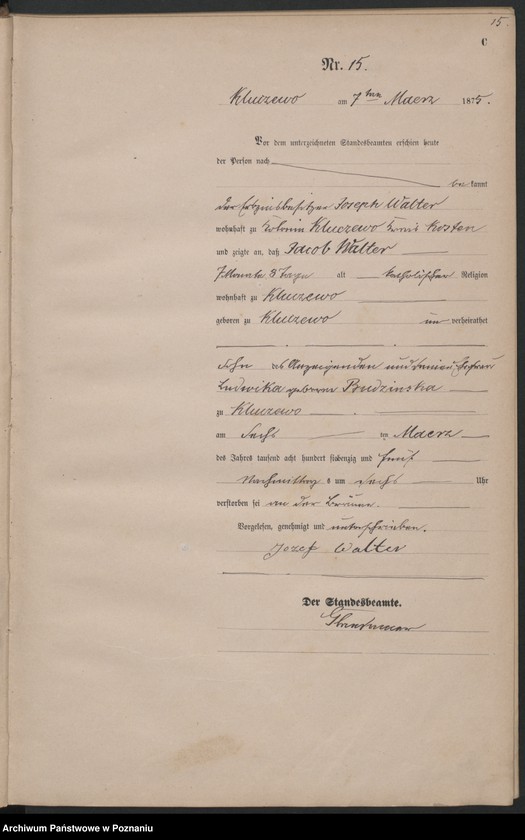 15.
C
Nr. 15.
Kluczewo am 7ten Maerz 1875.
Vor dem unterzeichneten Standesbeamten erschien heute
der Person nach
bekannt
der Joseph Walter
wohnhaft zu Colonie Kluczewo Kreis Kosten
und zeigte an, daß Jacob Walter
7 Monate 8 Tage alt katholischer Religion
wohnhaft zu Kluczewo
geboren zu Kluczewo
unverheirathet
Sohn des Anzeigenden und seiner Ehefrau
Ludwika geborene Budzinska
zu Kluczewo
am Sechs ten Maerz
des Jahres tausend acht hundert siebenzig und fünf
Nachmittags um Sechs Uhr
verstorben sei an der Bräune.
Vorgelesen, genehmigt und unterschrieben.
Jozef Walter
Der Standesbeamte.
Archiwum Państwowe w Poznaniu